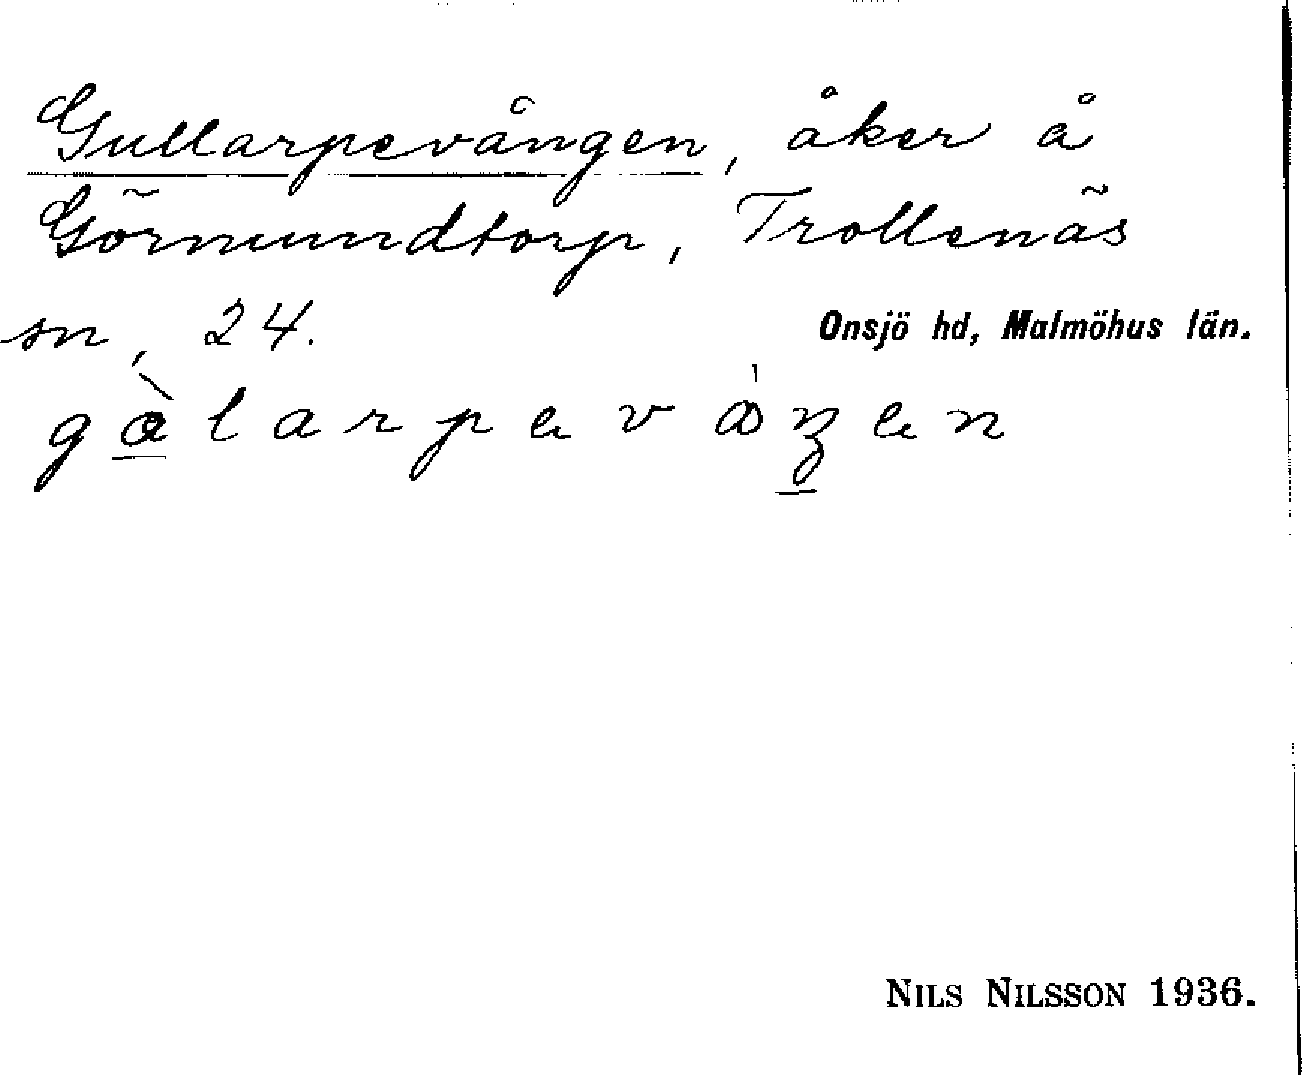 Gullarpevången, åker å
Görmundtorp, Trollenäs
sn, 24. Onsjö hd, Malmöhus län.
gàlarpevåŋen
NILS NILSSON 1936.